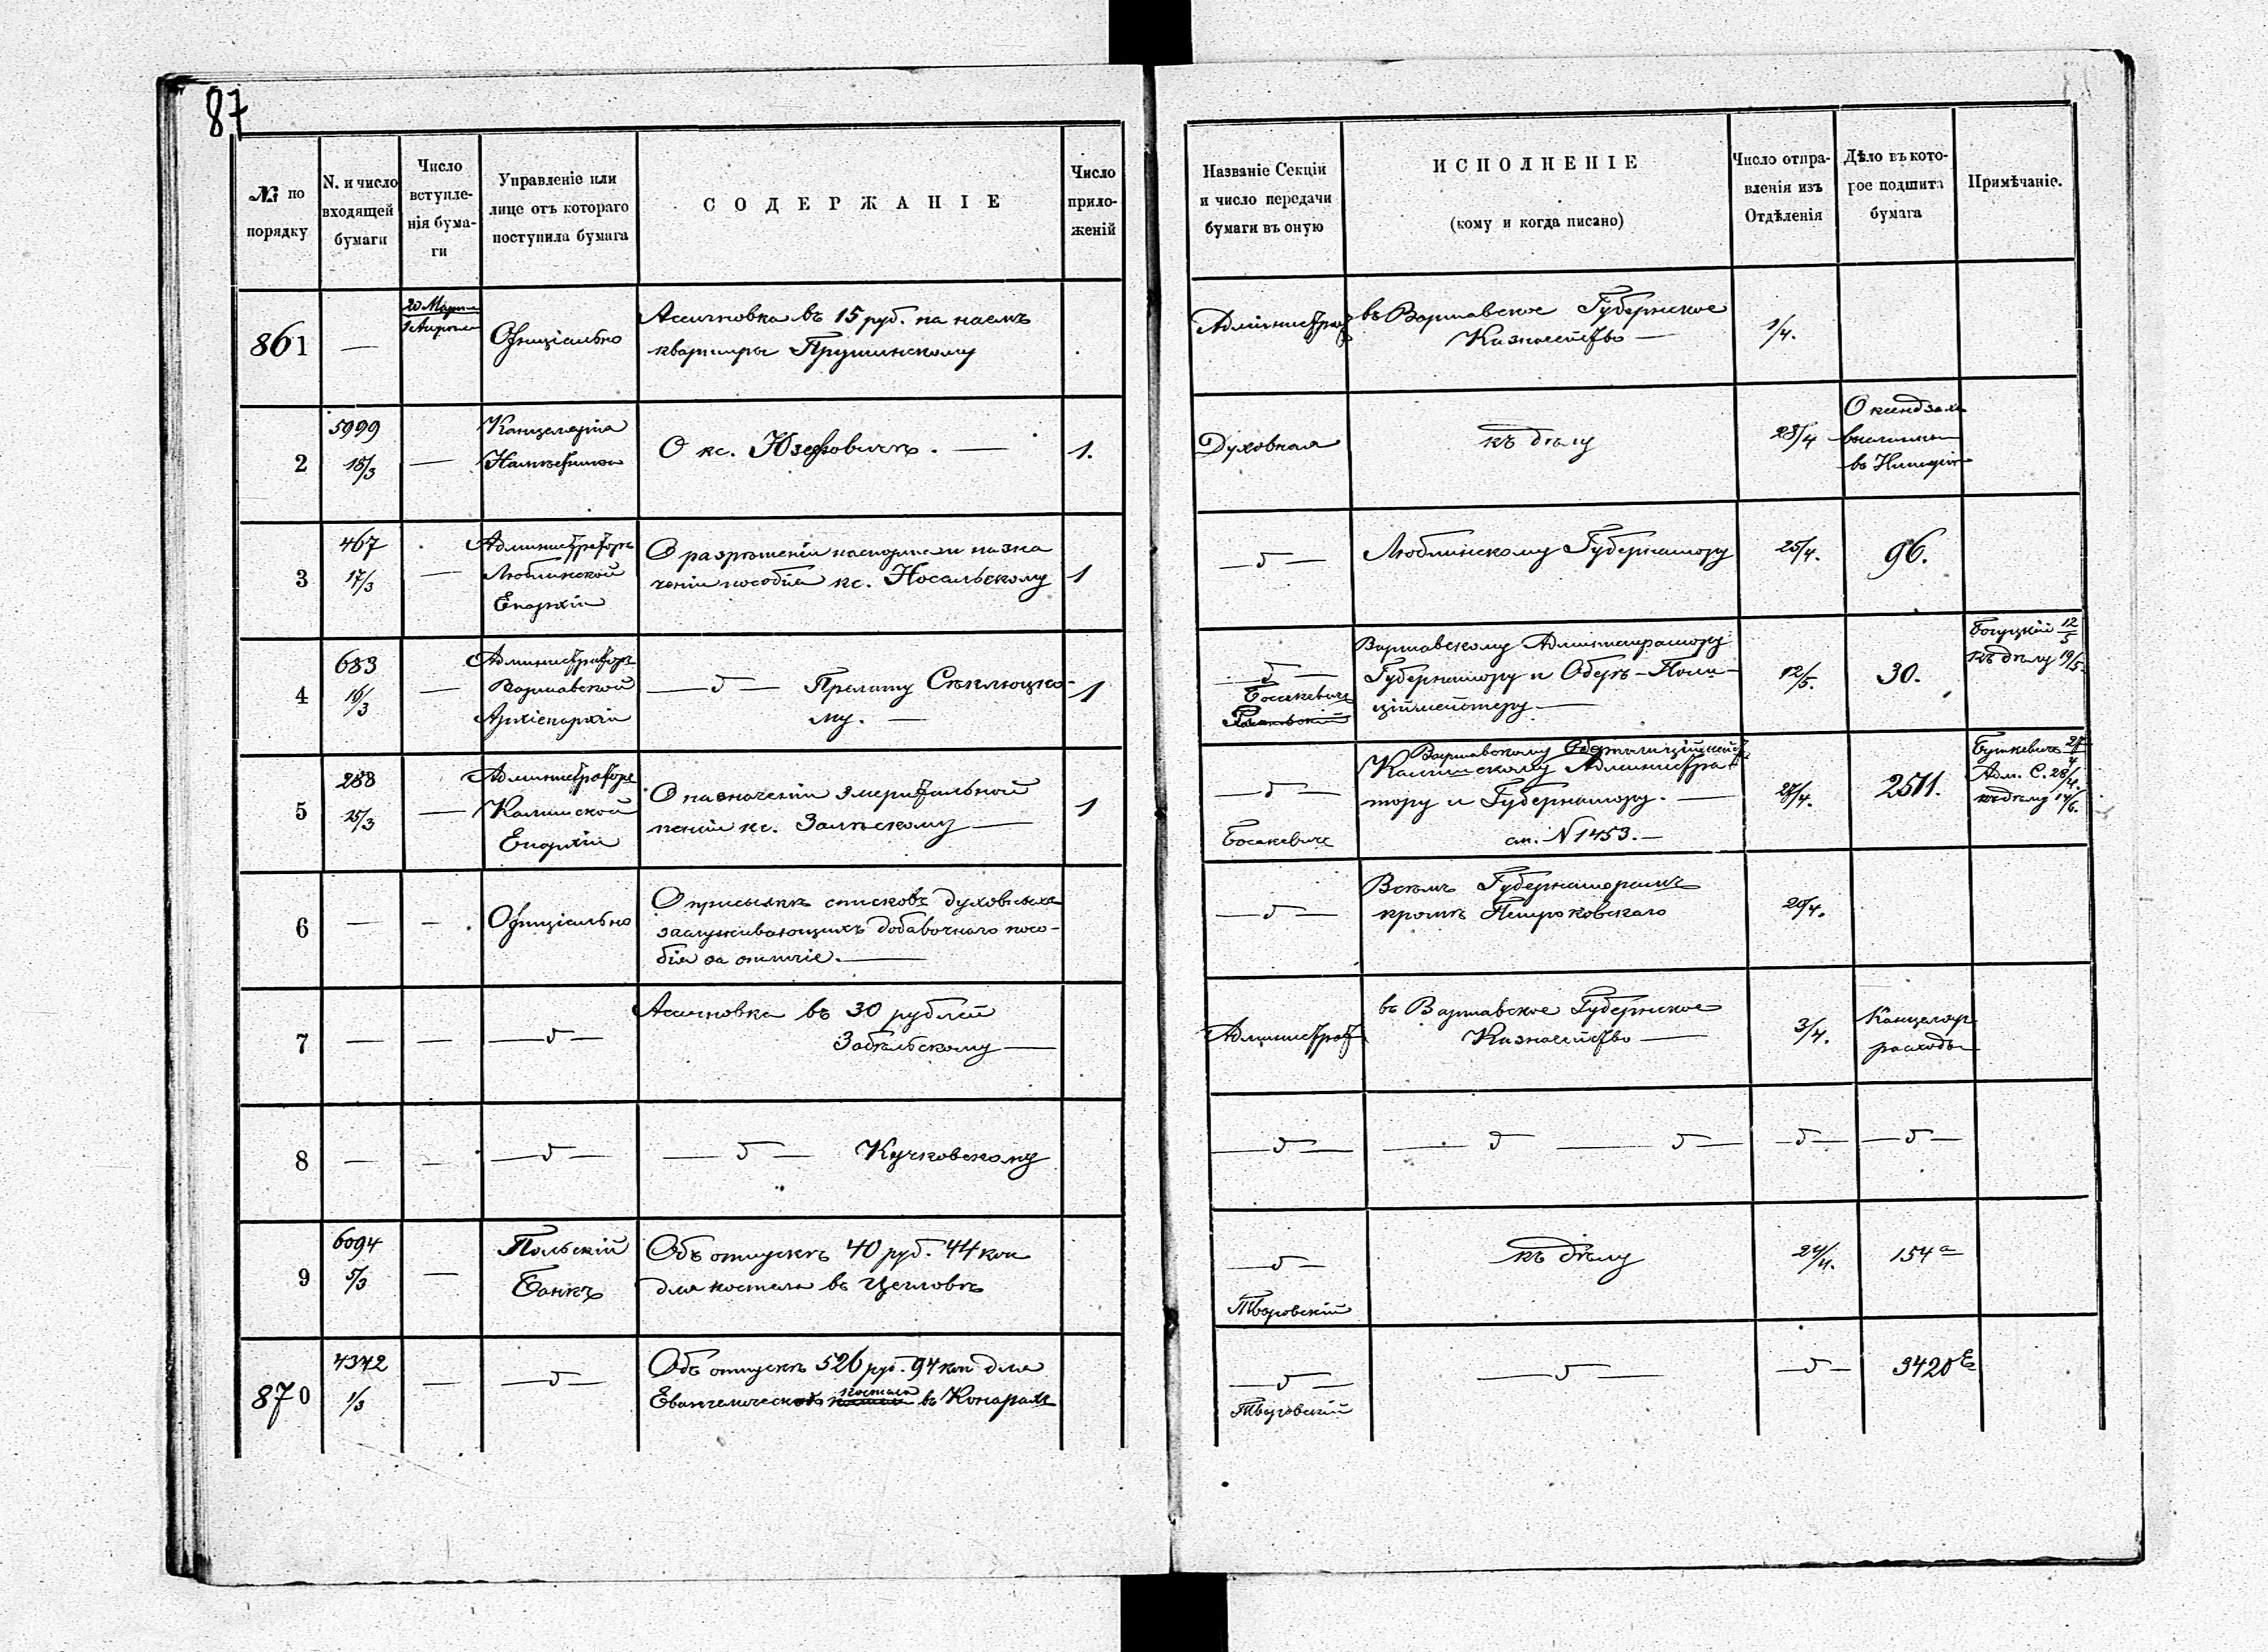 87
№ по порядку
N. и число входящей бумаги
Число вступле-нія бума-ги
Управленіе или лице отъ котораго поступила бумага
СОДЕРЖАНІЕ
Число прило-женій
Названіе Секціи и число передачи бумаги въ оную
ИСПОЛНЕНІЕ
(кому и когда писано)
Число отпра-вленія изъ Отдѣленія
Дѣло въ кото-рое подшита бумага
Примѣчаніе.
861
—
20 Марта
1 Апрѣля
Офиціально
Ассигновка въ 15 руб. на наемъ
квартиры Прушинскому
въ Варшавское Губернское
Казначейство —
1/4.
2
5999
—
Канцелярія
О кс. Юзефовичѣ. —
1.
Духовная
къ дѣлу
23/4
3
467
17/3
—
Администраторъ
Люблинской
Епархіи
О разрѣшеніи
ченіи пособія кс. Носальскому
1
— „ —
Люблинскому Губернатору
25/4.
96.
4
683
16/3
—
Администраторъ
Варшавской
Архіепархіи
— „ — Прелату
му. —
1
— „ —
Босакевичъ
Варшавскому Администратору
Губернатору и Оберъ-Поли-
ціймейстеру —
12/5.
30.
12/5
къ дѣлу 19/5.
5
288
25/3
—
Администраторъ
Калишской
Епархіи
О назначеніи эмеритальной
пенсіи кс. Залѣскому —
1
— „ —
Босакевичъ
Варшавскому
Калишскому Администра-
тору и Губернатору. —
см. N 1453. —
27/4.
2511.
Адм. С. 28/4.
къ дѣлу 14/6.
6
—
—
Офиціально
О присылкѣ списковъ духовныхъ
заслуживающихъ добавочнаго посо-
бія за отличіе. —
— „ —
Всѣмъ Губернаторамъ
кромѣ Петроковскаго
20/4.
7
—
—
— „ —
Ассигновка въ 30 рублей
Забѣльскому —
въ Варшавское Губернское
Казначейство —
3/4.
Канцеляр.
расходы
8
—
—
— „ —
— „ — Кучковскому
— „ —
— „ — „ —
— „ —
— „ —
9
6094
5/3
—
Польскій
Банкъ
Объ отпускѣ 40 руб. 44 коп
для костела въ Цегловѣ
— „ —
Творовскій
къ дѣлу
24/4.
154 а
870
4372
1/3
—
— „ —
Объ отпускѣ 526 руб. 94 коп для
костела
— „ —
Творовскій
— „ —
— „ —
3420